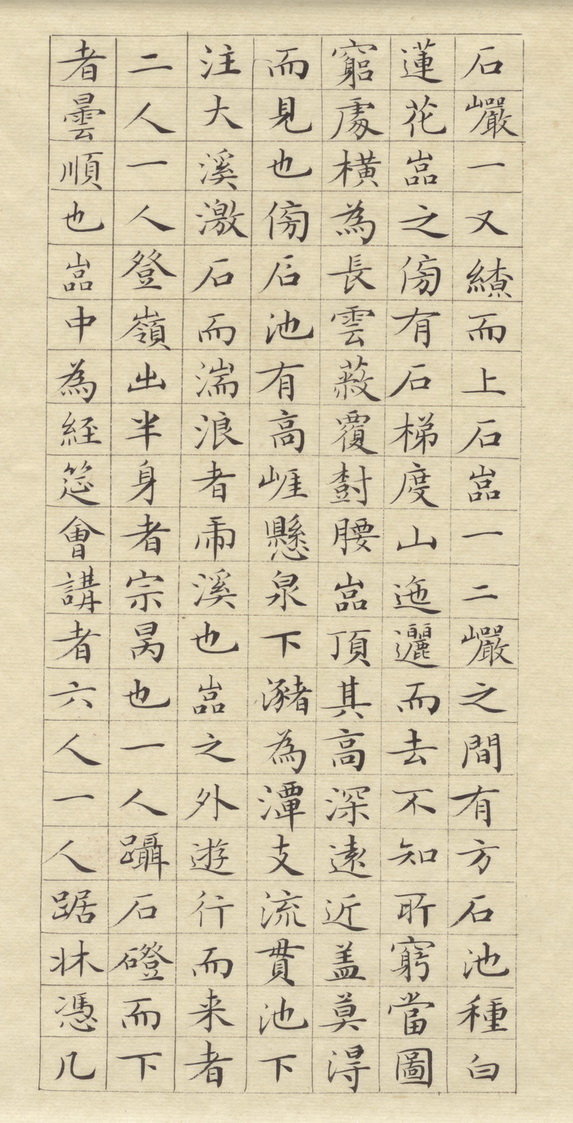 石巖一又縿而上石嵓一二巖之間有方石池種白
蓮花嵓之傍有石梯度山迤邐而去不知所窮當圖
窮處橫為長雲蔽覆樹腰嵓頂其高深遠近盖莫得
而見也傍后池有高崕懸泉下瀦為潭支流貫池下
注大溪激石而湍浪者乕溪也嵓之外遊行而来者
二人一人登嶺出半身者宗昺也一人躡石磴而下
者曇順也嵓中為經筵會講者六人一人踞牀憑几